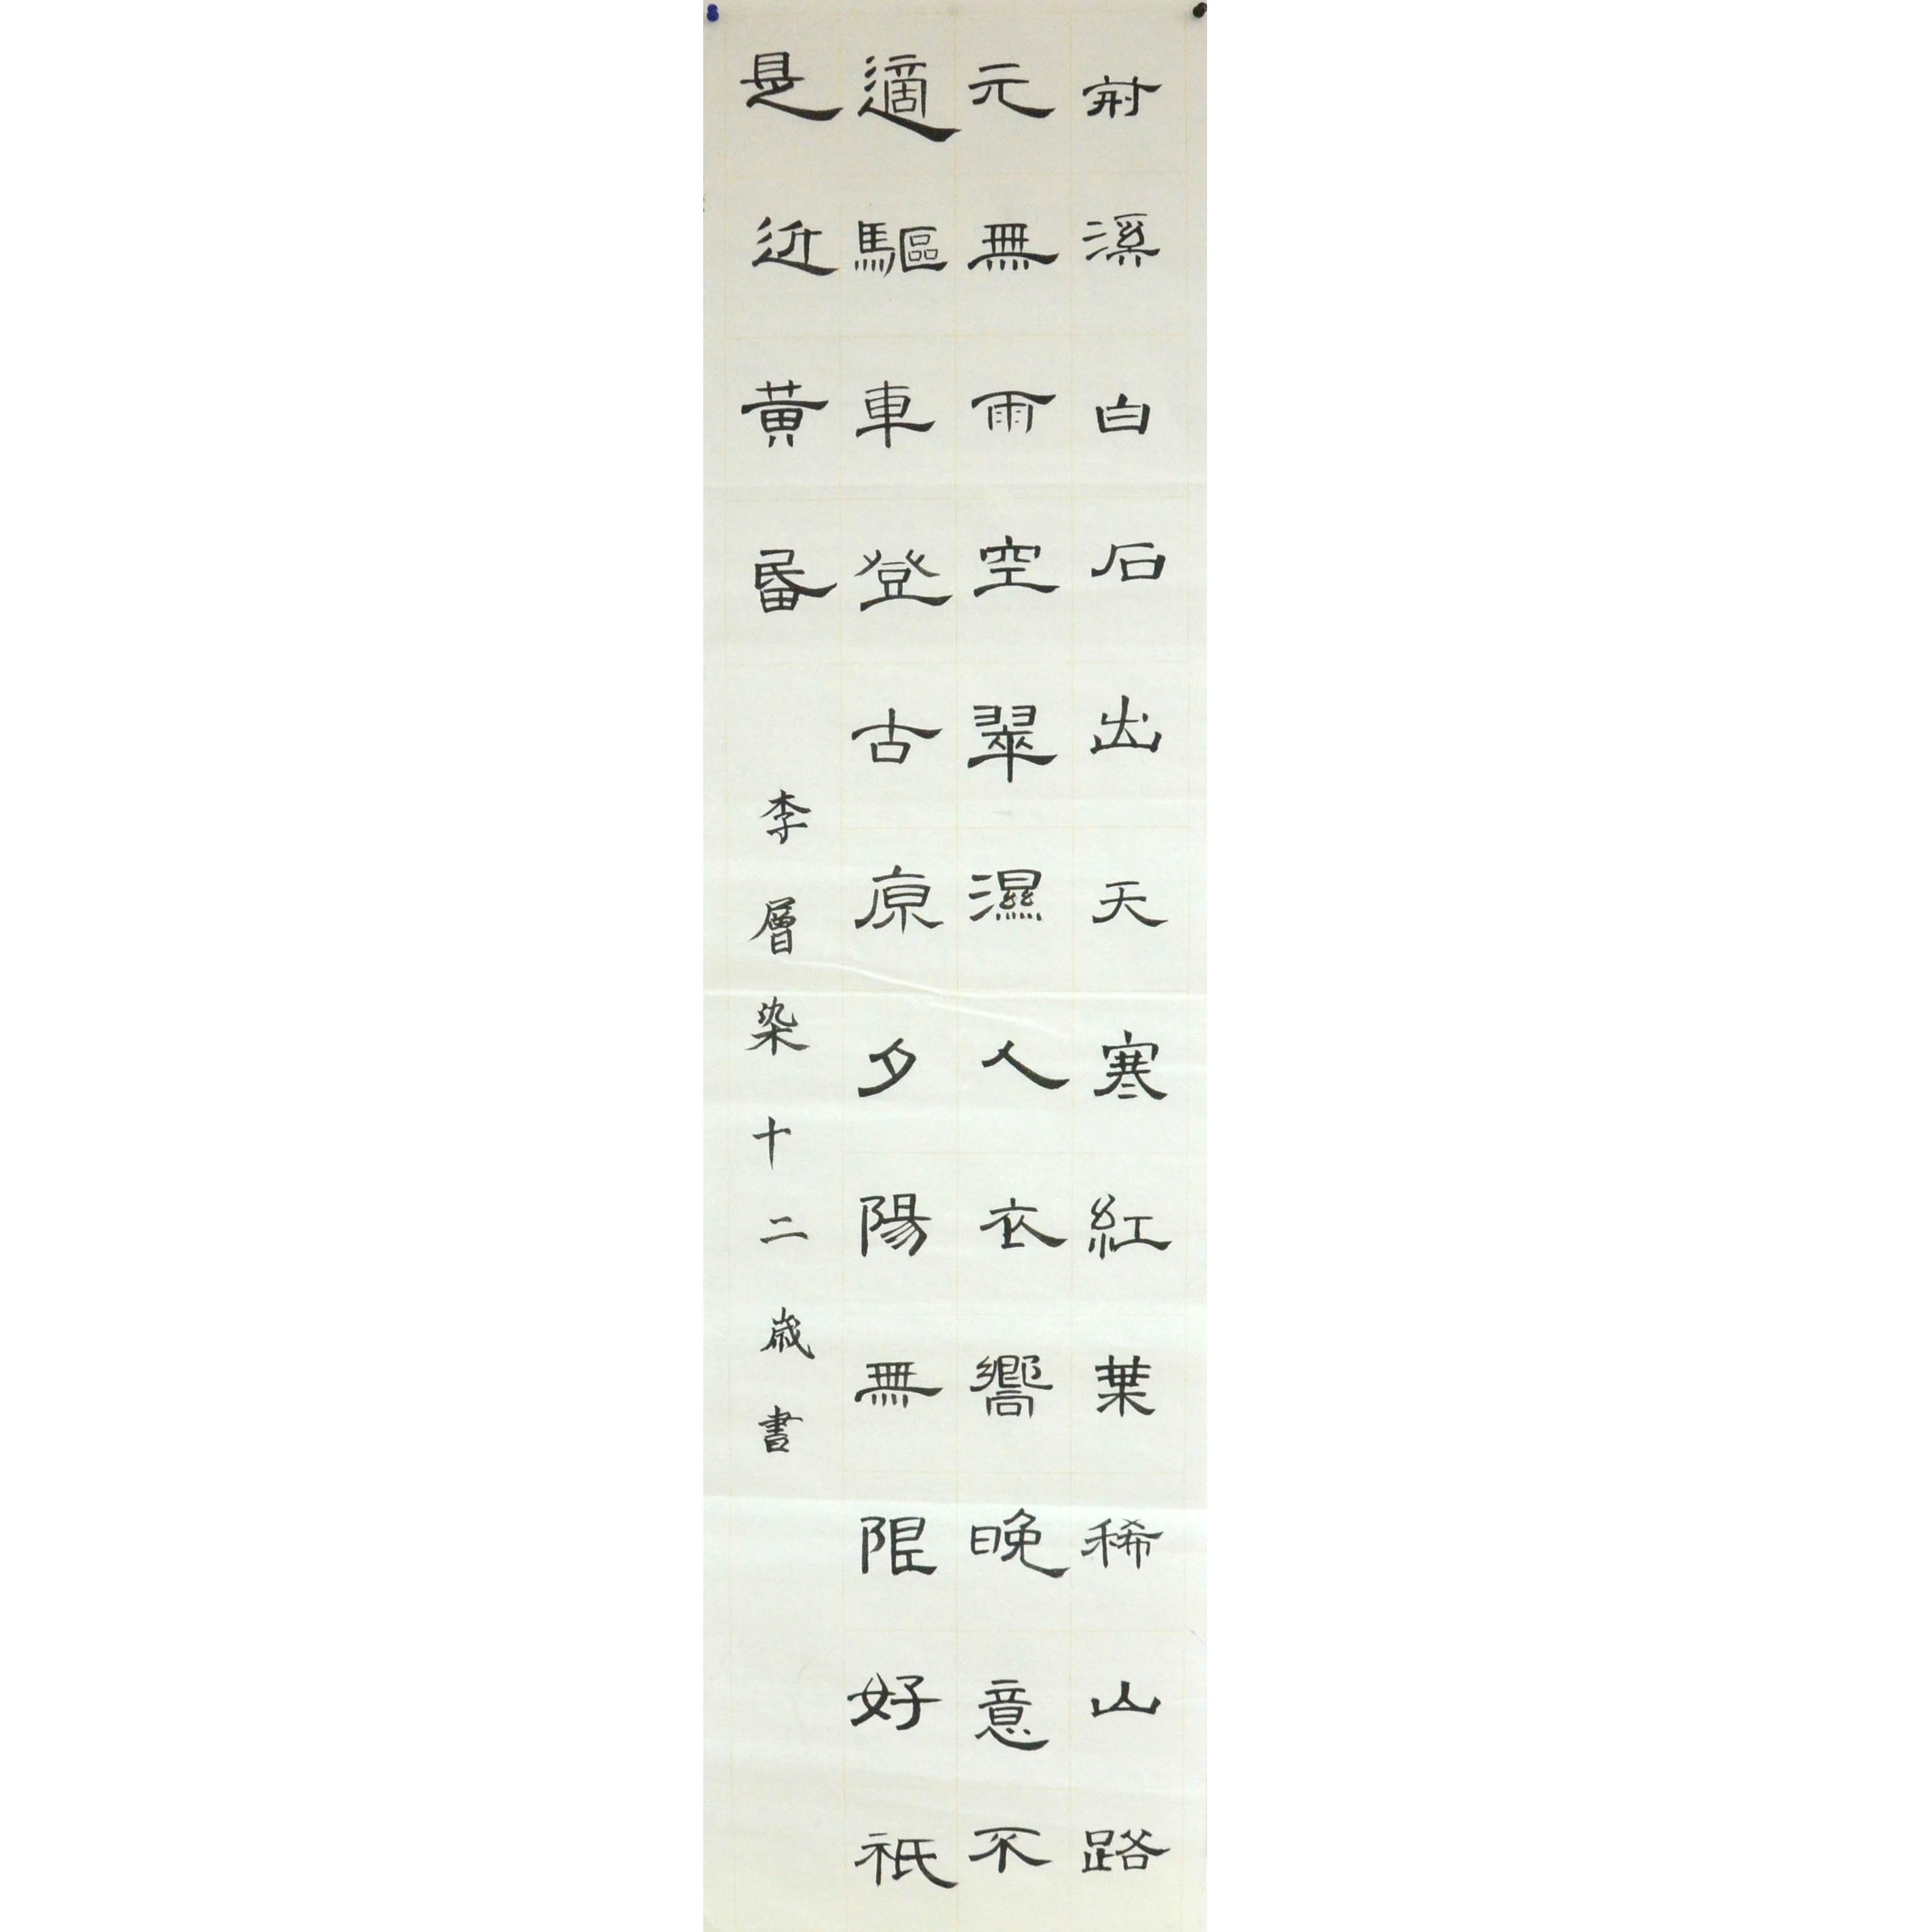 荊溪白石出天寒紅葉稀山路
元無雨空翠濕人衣嚮晚意不
適驅車登古原夕陽無限好祇
是近黃昬
李層染十二歲書